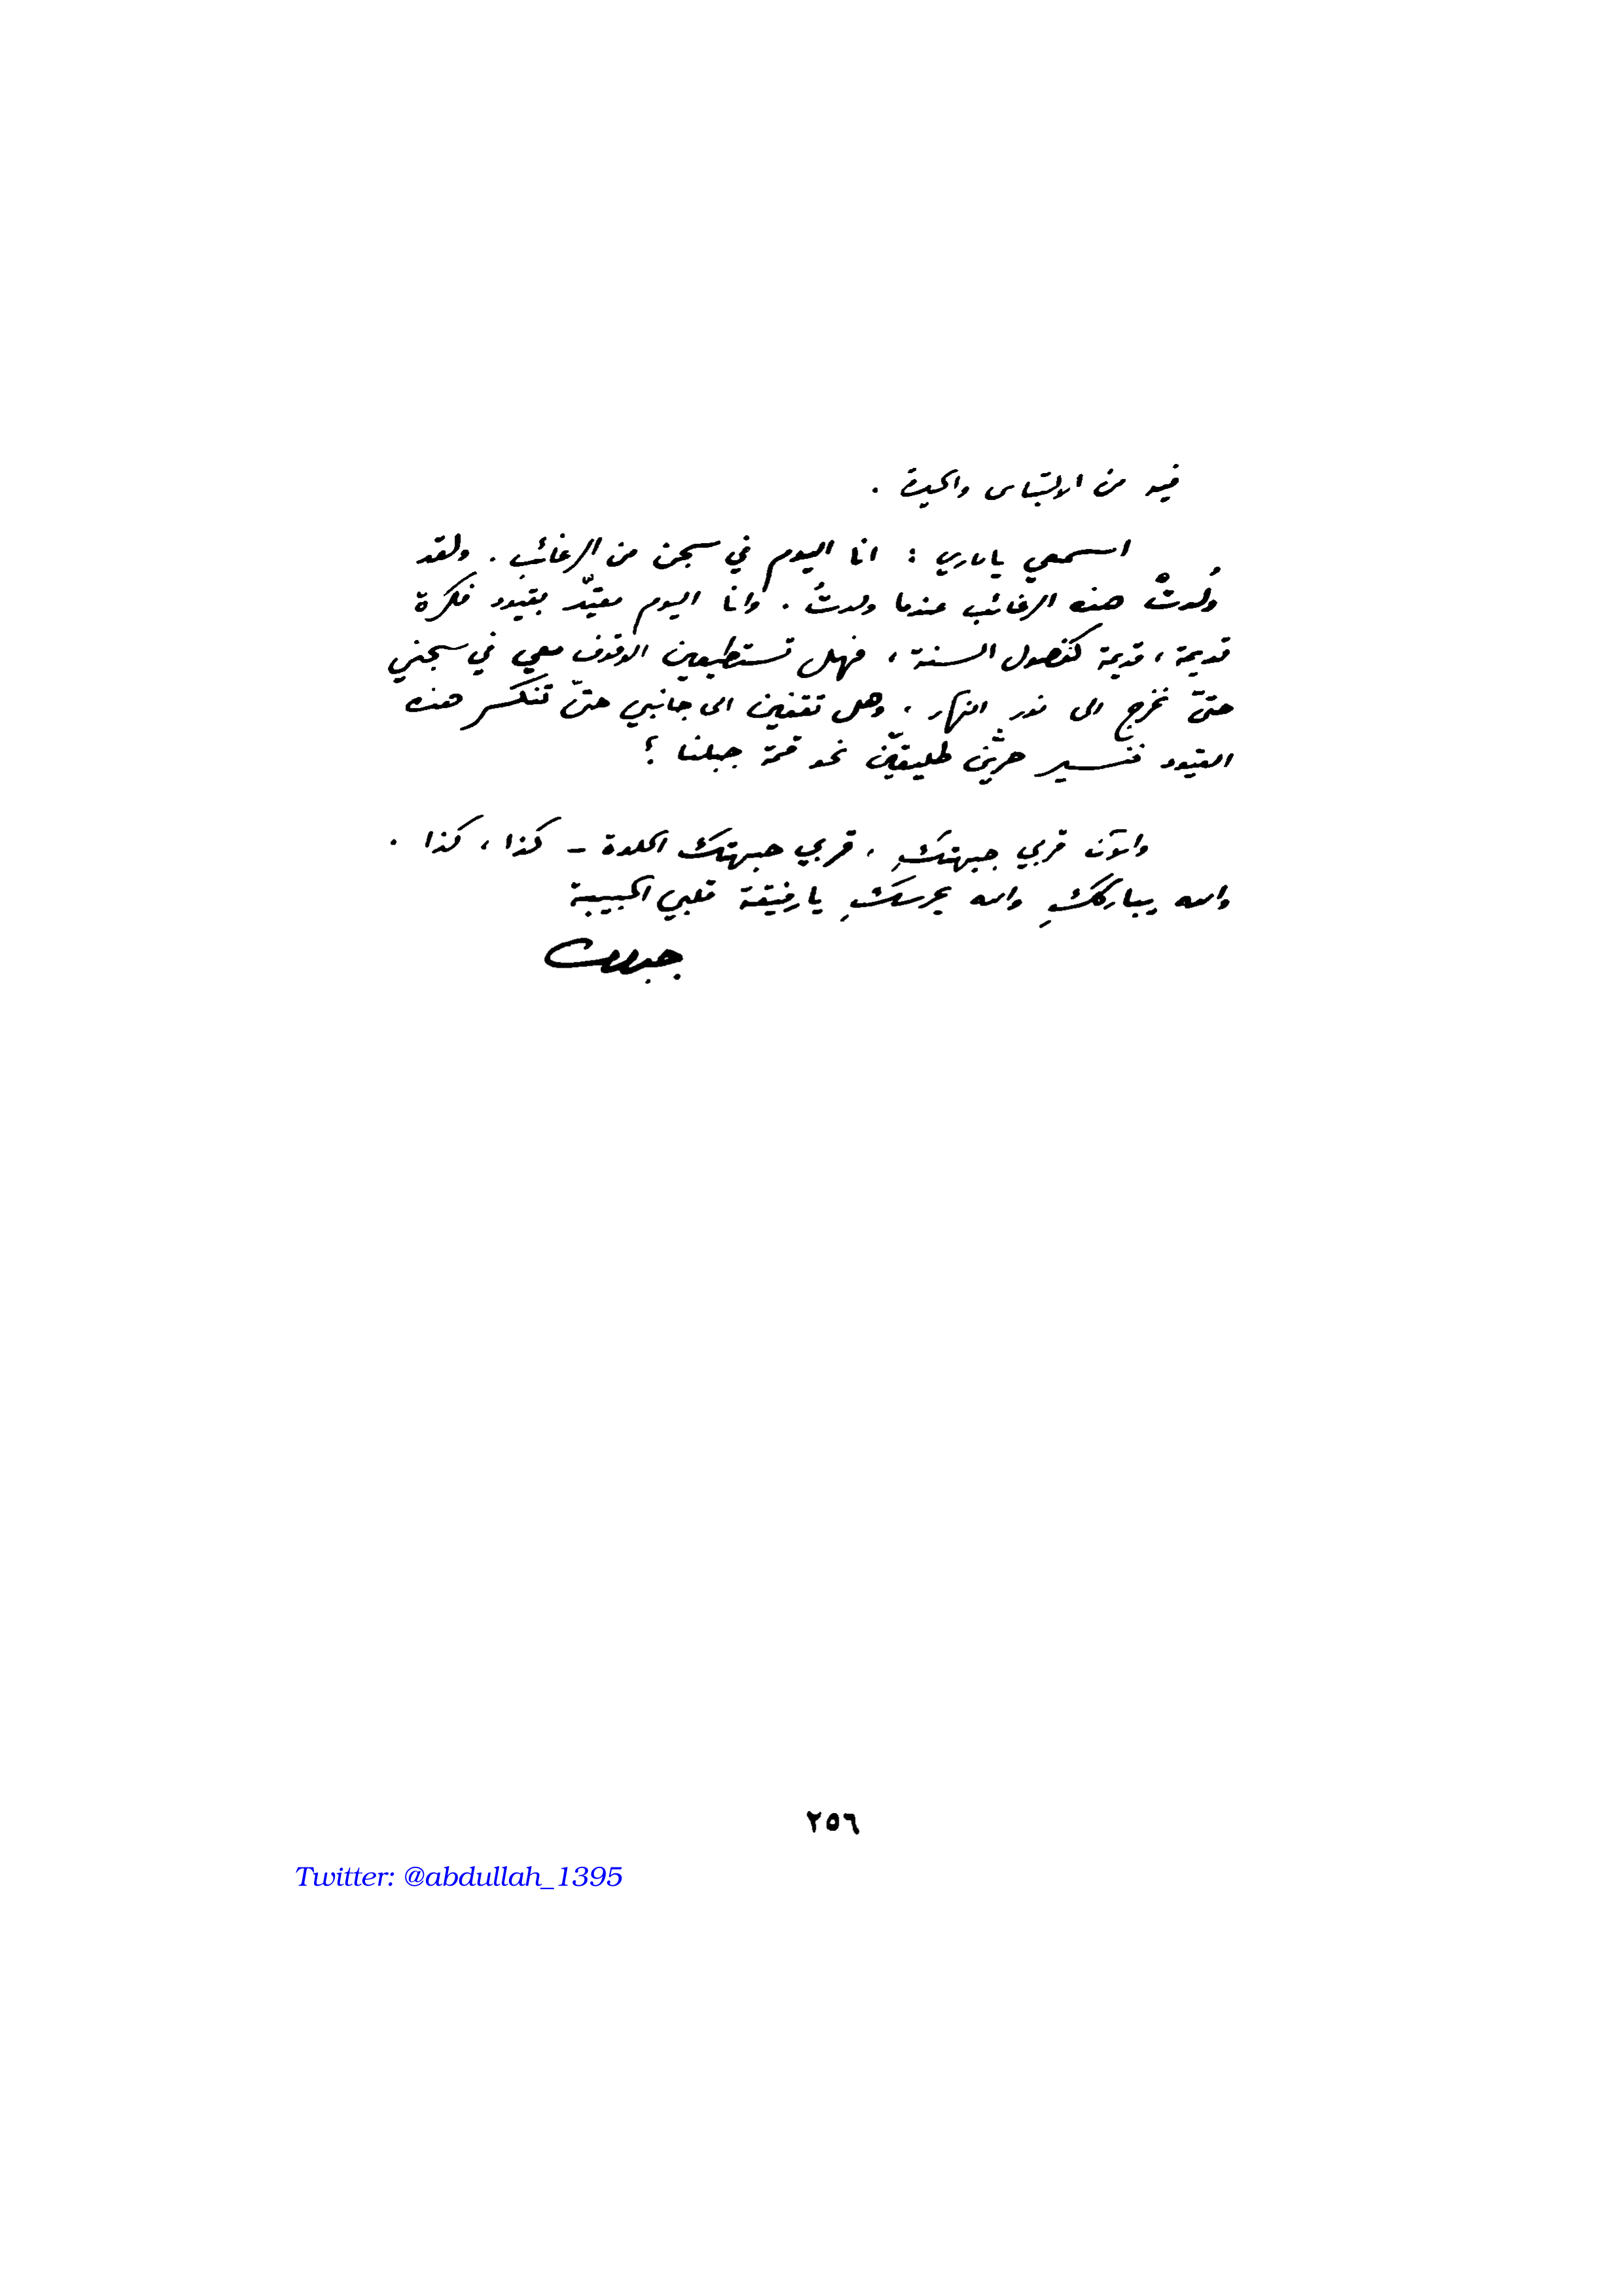 فيه من الالتباس والحيرة .
اسمعي يا ماري : انا اليوم في سجن من الرغائب . ولقد
وُلدتْ هذه الرغائب عندما ولدتُ . وانا اليوم مقيّد بقيود فكرة
قديمة ، قديمة كفصول السنة ، فهل تستطيعين الوقوف معي في سجني
حتّى نخرج الى نور النهار ، وهل تقفين الى جانبي حتّى تنكسر هذه
القيود فنسير حرّين طليقين نحو قمة جبلنا ؟
والآن قربي جبهتكِ ، قربي جبهتك الحلوة – كذا ، كذا .
والله يبارككِ والله يحرسكِ يا رفيقة قلبي الحبيبة
جبران
٢٥٦
Twitter: @abdullah_1395